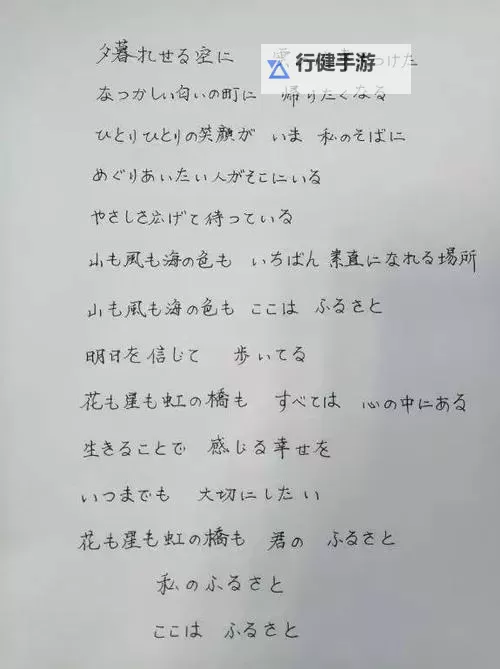 夕暮れせる空に
つけた
行健手游
なつかしい匂いの町に 帰りたくなる
ひとりひとりの笑顔が いま 私のそばに
めぐりあいたい人がそこにいる
やさしさ広げて待っている
山も風も海の色も いちばん 素直になれる場所
山も風も海の色も ここは ふるさと
明日を信じて 歩いてる
花も星も虹の橋も すべては 心の中にある
生きることで 感じる幸せを
いつまでも 大切にしたい
花も星も虹の橋も 君の ふるさと
私のふるさと
ここは ふるさと